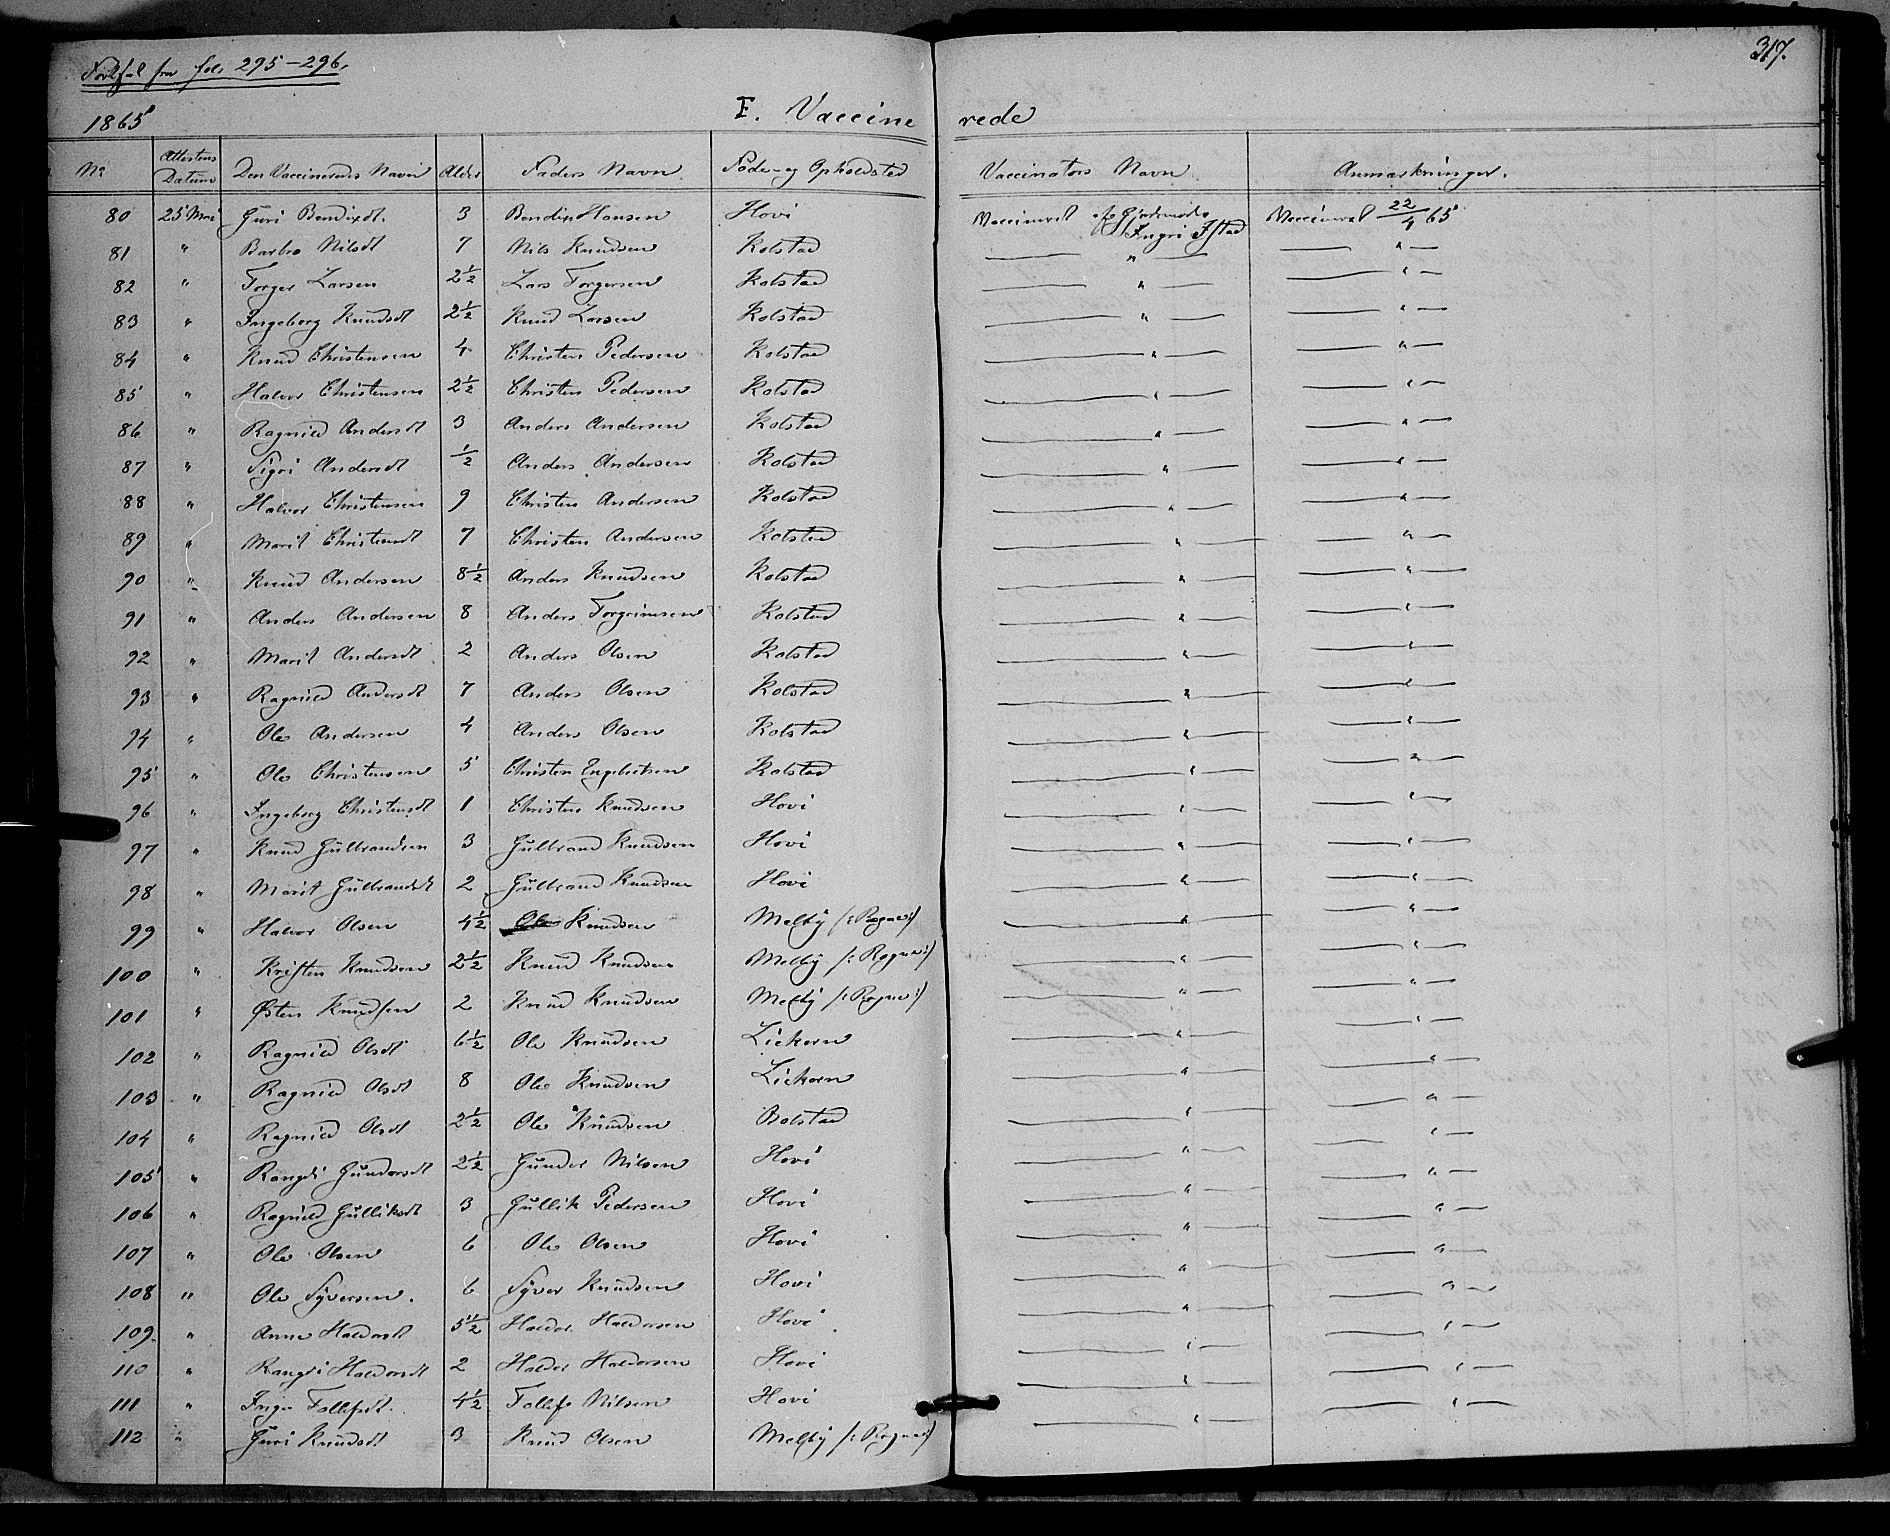 Fortsat fra fol. 295-296.
317.
1865
F. Vaccine rede
No Attestens Datum Den Vaccineredes Navn Alder Faders Navn Føde- og Opholdsted Vaccinators Navn Anmærkninger.
80 25 Mai Guri Bendixdt. 3 Bendix Hansen Hovi Vaccineret af Gjordemoder Ingri Istad Vaccineret 22/4 65
81 " Barbro Nilsdt 7 Nils Knudsen Kolstad — " — — " —
82 " Torger Larsen 2½ Lars Torgersen Kolstad — " — — " —
83 " Ingeborg Knudsdt 2½ Knud Larsen Kolstad — " — — " —
84 " Knud Christensen 4 Christen Pedersen Kolstad — " — — " —
85 " Halvor Christensen 2½ Christen Pedersen Kolstad — " — — " —
86 " Ragnild Andersdt 3 Anders Andersen Kolstad — " — — " —
87 " Sigri Andersdt ½ Anders Andersen Kolstad — " — — " —
88 " Halvor Christensen 9 Christen Andersen Kolstad — " — — " —
89 " Marit Christensdt 7 Christen Andersen Kolstad — " — — " —
90 " Knud Andersen 8½ Anders Knudsen Kolstad — " — — " —
91 " Anders Andersen 8 Anders Torgrimsen Kolstad — " — — " —
92 " Marit Andersdt 2 Anders Olsen Kolstad — " — — " —
93 " Ragnild Andersdt 7 Anders Olsen Kolstad — " — — " —
94 " Ole Andersen 4 Anders Olsen Kolstad — " — — " —
95 " Ole Christensen 5 Christen Engebretsen Kolstad — " — — " —
96 " Ingeborg Christensdt 1 Christen Knudsen Hovi — " — — " —
97 " Knud Gulbrandsen 3 Gulbrand Knudsen Hovi — " — — " —
98 " Marit Gulbrandsdt 2 Gulbrand Knudsen Hovi — " — — " —
99 " Halvor Olsen 4½ Ole Knudsen Melby /: Rogne :/ — " — — " —
100 " Kristen Knudsen 2½ Knud Knudsen Melby /: Rogne :/ — " — — " —
101 " Østen Knudsen 2 Knud Knudsen Melby /: Rogne :/ — " — — " —
102 " Ragnild Olsdt 6½ Ole Knudsen Liekern — " — — " —
103 " Ragnild Olsdt 8 Ole Knudsen Liekern — " — — " —
104 " Ragnild Olsdt 2½ Ole Knudsen Bolstad — " — — " —
105 " Rangdi Gundersdt 2½ Gunder Nilsen Hovi — " — — " —
106 " Ragnild Gulliksdt 3 Gullik Pedersen Hovi — " — — " —
107 " Ole Olsen 6 Ole Olsen Hovi — " — — " —
108 " Ole Syversen. 6 Syver Knudsen Hovi — " — — " —
109. " Anne Haldorsdt 5½ Haldor Haldorsen Hovi — " — — " —
110 " Rangdi Haldorsdt 2 Haldor Haldorsen Hovi — " — — " —
111 " Inga Tollefsdt. 4½ Tollef Nilsen Hovi — " — — " —
112 " Guri Knudsdt 3 Knud Olsen Melby /: Rogne :/ — " —